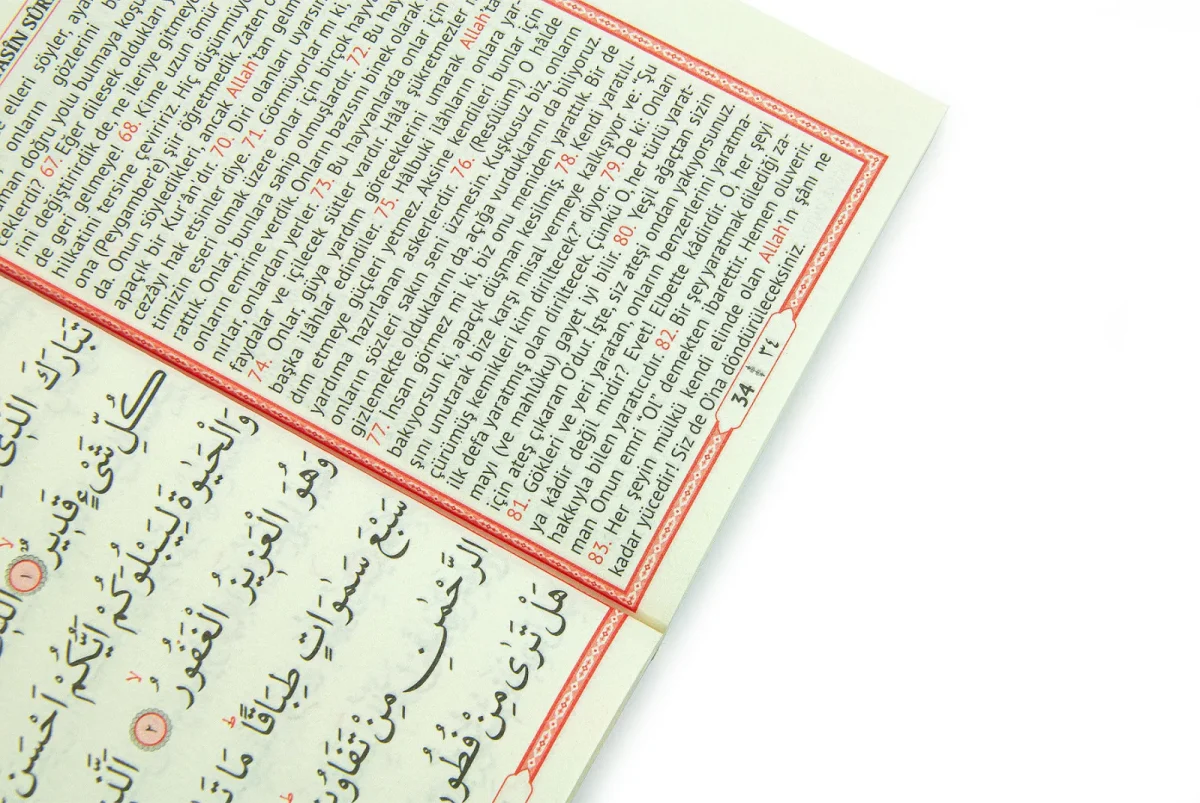 ASİN SÛR
etleri söyler, aya
onların gözlerini b
doğru yolu bulmaya koşu
67. Eğer dilesek oldukları y
rini değiştirirdik de, ne ileriye gitmeye
de geri gelmeye! 68. Kime uzun ömür
hilkatini tersine çeviririz. Hiç düşünmüyo
ona (Peygambere) şiir öğretmedik. Zaten o
da. Onun söyledikleri, ancak Allah'tan gelm
apaçık bir Kur'ân'dır. 70. Diri olanları uyarsın
cezâyı hak etsinler diye. 71. Görmüyorlar mı ki,
timizin eseri olmak üzere onlar için birçok hayva
rattık. Onlar, bunlara sahip olmuşlardır. 72. Bu hay
onların emrine verdik. Onların bazısını binek olarak
nırlar, onlardan yerler. 73. Bu hayvanlarda onlar için
faydalar ve içilecek sütler vardır. Hâlâ şükretmezler
74. Onlar, gûya yardım göreceklerini umarak Allah'ta
başka ilâhlar edindiler. 75. Hâlbuki ilâhların onlara yar
dım etmeye güçleri yetmez. Aksine kendileri bunlar için
yardıma hazırlanan askerlerdir. 76. (Resûlüm) O hâlde
onların sözleri sakın seni üzmesin. Kuşkusuz biz, onların
gizlemekte olduklarını da, açığa vurduklarını da biliyoruz.
77. İnsan görmez mi ki, biz onu meniden yarattık. Bir de
bakıyorsun ki, apaçık düşman kesilmiş. 78. Kendi yaratılı-
şını unutarak bize karşı misal vermeye kalkışıyor ve: “Şu
çürümüş kemikleri kim diriltecek?” diyor. 79. De ki: Onları
ilk defa yaratmış olan diriltecek. Çünkü O, her türlü yarat-
mayı (ve mahlûku) gayet iyi bilir. 80. Yeşil ağaçtan sizin
için ateş çıkaran O'dur. İşte, siz ateşi ondan yakıyorsunuz.
81. Gökleri ve yeri yaratan, onların benzerlerini yaratma-
ya kâdir değil midir? Evet! Elbette kâdirdir. O, her şeyi
hakkıyla bilen yaratıcıdır. 82. Bir şey yaratmak dilediği za
man Onun emri “Ol” demekten ibarettir. Hemen oluverir.
83. Her şeyin mülkü kendi elinde olan Allah'ın şânı ne
kadar yücedir! Siz de O'na döndürüleceksiniz.
34 ٣٤
تَبَارَكَ الَّذِى
كُلِّ شَىْءٍ قَدِيرٌ ١
وَالْحَيٰوةَ لِيَبْلُوَكُمْ اَيُّكُمْ اَحْسَنُ
وَهُوَ الْعَزِيزُ الْغَفُورُ ٢
سَبْعَ سَمٰوَاتٍ طِبَاقًا مَا
الرَّحْمٰنِ مِنْ تَفَاوُتٍ
هَلْ تَرٰى مِنْ فُطُورٍ